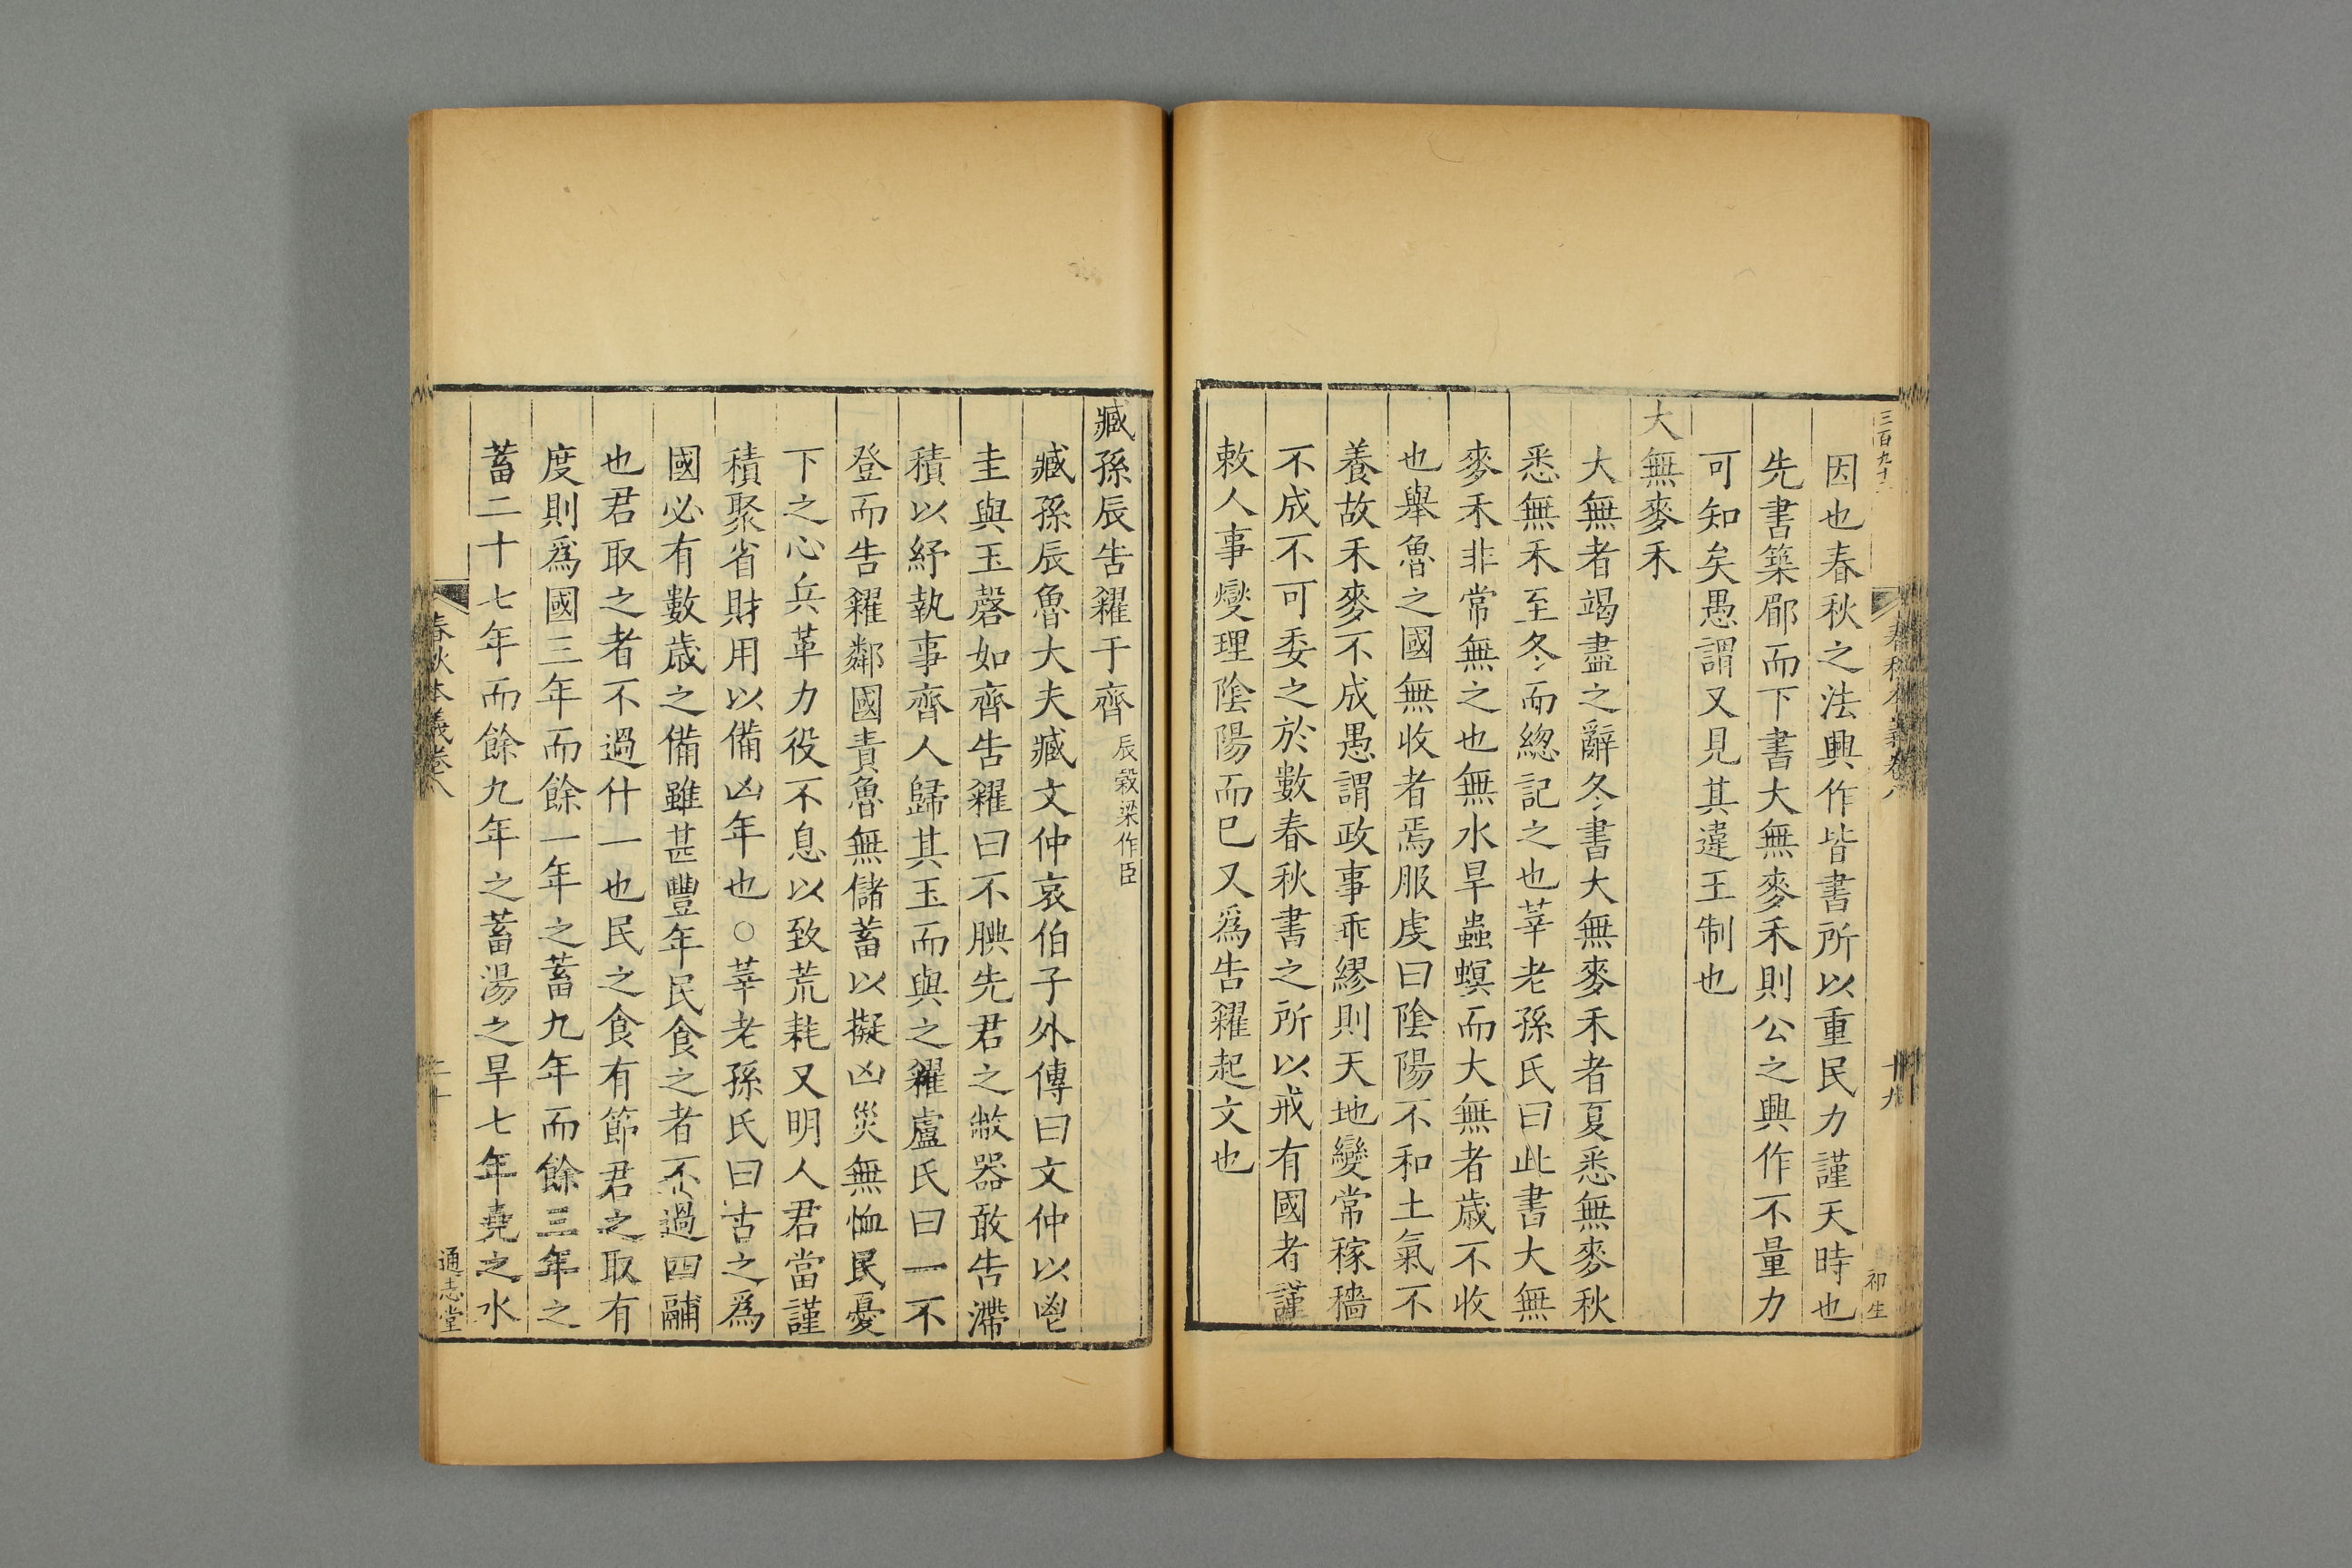 因也春秋之法興作皆書所以重民力謹天時也
先書築郿而下書大無麥禾則公之興作不量力
可知矣愚謂又見其違王制也
大無麥禾
大無者竭盡之辭冬書大無麥禾者夏悉無麥秋
悉無禾至冬而緫記之也莘老孫氏曰此書大無
麥禾非常無之也無水旱蟲螟而大無者歳不收
也舉魯之國無收者焉服虔曰隂陽不和土氣不
養故禾麥不成愚謂政事乖繆則天地變常稼穡
不成不可委之於數春秋書之所以戒有國者謹
敕人事燮理隂陽而已又爲告糴起文也
臧孫辰告糴于齊 辰穀梁作臣
臧孫辰魯大夫臧文仲哀伯子外傳曰文仲以鬯
圭與玉磬如齊告糴曰不腆先君之敝器敢告滯
積以紓執事齊人歸其玉而與之糴盧氏曰一不
登而告糴鄰國責魯無儲蓄以擬凶災無恤民憂
下之心兵革力役不息以致荒耗又明人君當謹
積聚省財用以備凶年也○莘老孫氏曰古之爲
國必有數歳之備雖甚豐年民食之者不過四鬴
也君取之者不過什一也民之食有節君之取有
度則爲國三年而餘一年之蓄九年而餘三年之
蓄二十七年而餘九年之蓄湯之旱七年堯之水
春秋本義卷八
二十
通志堂